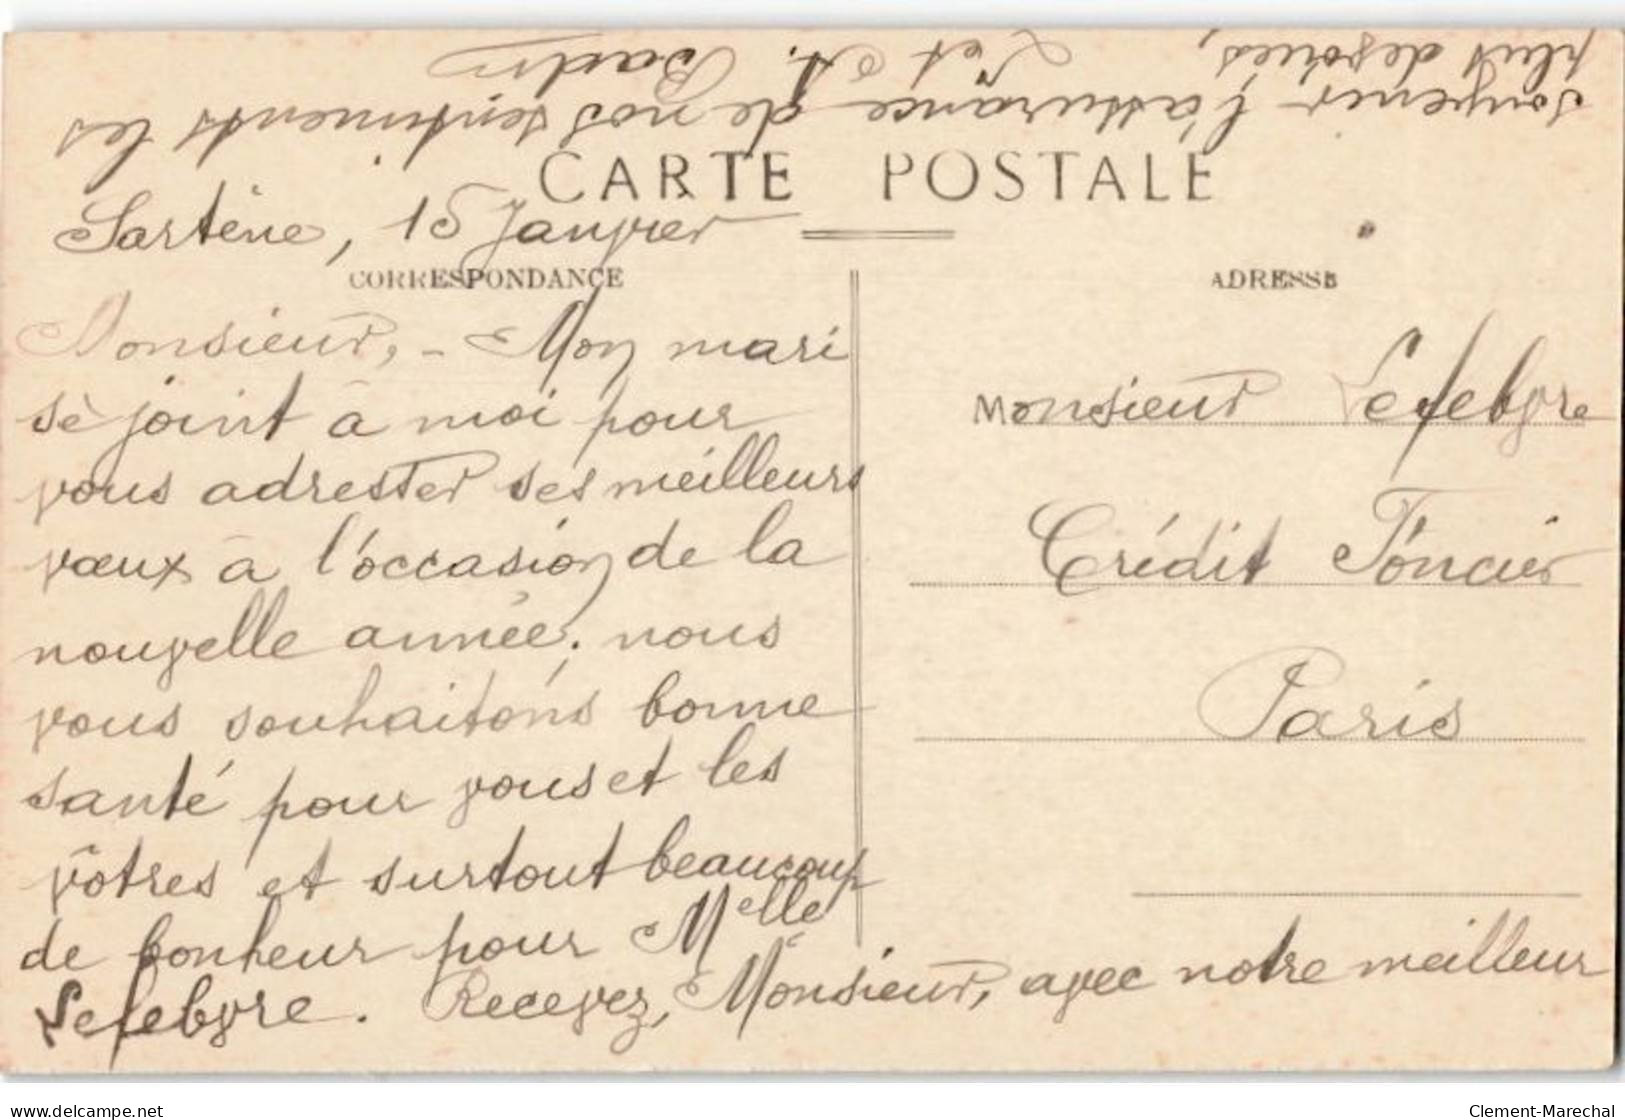 CARTE POSTALE
Sartène, 15 Janvier
CORRESPONDANCE
Monsieur, - Mon mari
se joint à moi pour
vous adresser ses meilleurs
vœux à l'occasion de la
nouvelle année; nous
vous souhaitons bonne
santé pour vous et les
vôtres et surtout beaucoup
de bonheur pour Melle
Lefebvre. Recevez, Monsieur, avec notre meilleur
souvenir l'assurance de nos sentiments les
plus desoués,
L et A.
ADRESSE
Monsieur Lefebvre
Crédit Foncier
Paris
delcampe.net
Clement-Marechal